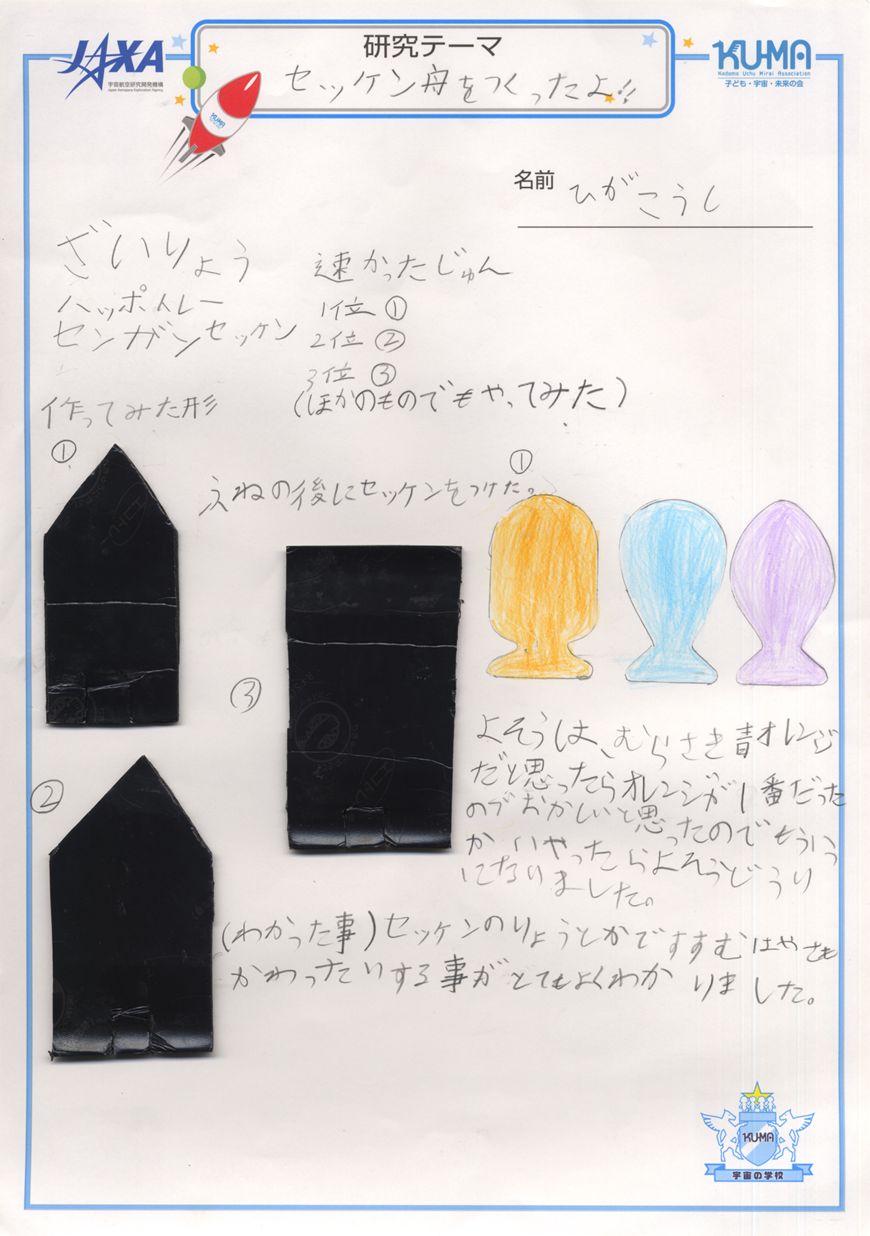 JAXA
宇宙航空研究開発機構
Japan Aerospace Exploration Agency
研究テーマ
セッケン舟をつくったよ!!
KUMA
Kodomo Uchu Mirai Association
子ども・宇宙・未来の会
KUMA
名前 ひがこうし
ざいりょう
ハッポトレー
センガンセッケン
速かったじゅん
1位 ①
2位 ②
3位 ③
(ほかのものでもやってみた)
作ってみた形
①
ふねの後にセッケンをつけた。
①
③
②
よそうは、むらさき青オレンジ
だと思ったらオレンジが1番だった
のでおかしいと思ったのでもういっ
かいやったらよそうどうり
になりました。
(わかった事)セッケンのりょうとかですすむはやさも
かわったりする事がとてもよくわかりました。
KUMA
宇宙の学校